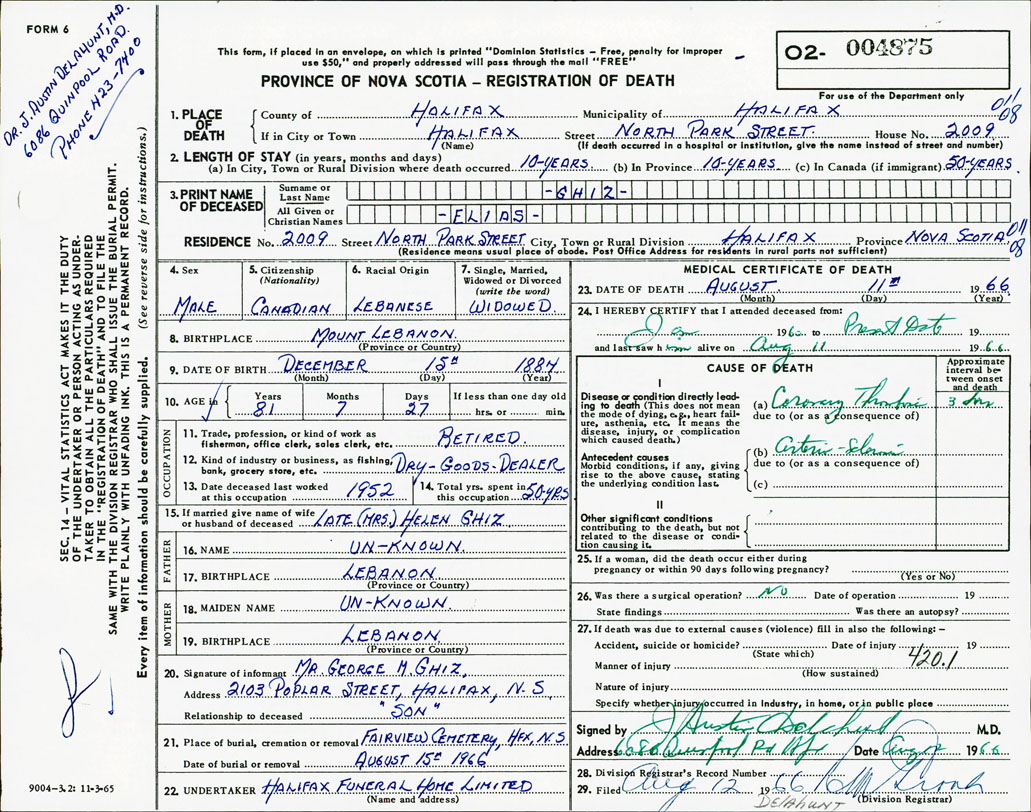 FORM 6
DR. J. AUSTIN DELAHUNT, M.D.
6086 QUINPOOL ROAD.
PHONE 423-7400
SEC. 14 – VITAL STATISTICS ACT MAKES IT THE DUTY
OF THE UNDERTAKER OR PERSON ACTING AS UNDER-
TAKER TO OBTAIN ALL THE PARTICULARS REQUIRED
IN THE "REGISTRATION OF DEATH" AND TO FILE THE
SAME WITH THE DIVISION REGISTRAR WHO SHALL ISSUE THE BURIAL PERMIT.
WRITE PLAINLY WITH UNFADING INK. THIS IS A PERMANENT RECORD.
Every item of information should be carefully supplied. (See reverse side for instructions.)
9004-3.2: 11-3-65
This form, if placed in an envelope, on which is printed "Dominion Statistics – Free, penalty for improper
use $50," and properly addressed will pass through the mail "FREE"
PROVINCE OF NOVA SCOTIA – REGISTRATION OF DEATH
O2- 004875
For use of the Department only
011
08
1. PLACE OF DEATH
County of HALIFAX Municipality of HALIFAX
If in City or Town HALIFAX Street NORTH PARK STREET. House No. 2009
(Name) (If death occurred in a hospital or institution, give the name instead of street and number)
2. LENGTH OF STAY (in years, months and days)
(a) In City, Town or Rural Division where death occurred 10-YEARS. (b) In Province 10-YEARS. (c) In Canada (if immigrant) 50-YEARS
3. PRINT NAME OF DECEASED
Surname or Last Name -GHIZ-
All Given or Christian Names -ELIAS-
RESIDENCE No. 2009 Street NORTH PARK STREET City, Town or Rural Division HALIFAX Province NOVA SCOTIA 011
08
(Residence means usual place of abode. Post Office Address for residents in rural parts not sufficient)
4. Sex
MALE
5. Citizenship
(Nationality)
CANADIAN
6. Racial Origin
LEBANESE
7. Single, Married,
Widowed or Divorced
(write the word)
WIDOWED.
8. BIRTHPLACE MOUNT LEBANON.
(Province or Country)
9. DATE OF BIRTH DECEMBER 15th 1884
(Month) (Day) (Year)
10. AGE in Years Months Days If less than one day old
81 7 27 hrs. or min.
OCCUPATION
11. Trade, profession, or kind of work as
fisherman, office clerk, sales clerk, etc. RETIRED.
12. Kind of industry or business, as fishing,
bank, grocery store, etc. DRY-GOODS-DEALER
13. Date deceased last worked
at this occupation 1952
14. Total yrs. spent in
this occupation 50-YRS
15. If married give name of wife
or husband of deceased LATE (MRS.) HELEN GHIZ
FATHER
16. NAME UN-KNOWN.
17. BIRTHPLACE LEBANON
(Province or Country)
MOTHER
18. MAIDEN NAME UN-KNOWN.
19. BIRTHPLACE LEBANON
(Province or Country)
20. Signature of informant MR. GEORGE M. GHIZ,
Address 2103 POPLAR STREET, HALIFAX, N.S.
Relationship to deceased "SON"
21. Place of burial, cremation or removal FAIRVIEW CEMETERY, HFX, N.S
Date of burial or removal AUGUST 15th 1966
22. UNDERTAKER HALIFAX FUNERAL HOME LIMITED
(Name and address)
MEDICAL CERTIFICATE OF DEATH
23. DATE OF DEATH AUGUST 11th 1966
(Month) (Day) (Year)
24. I HEREBY CERTIFY that I attended deceased from:
Jan 196 to Present Date 19
and last saw him alive on Aug 11 1966
CAUSE OF DEATH
Approximate
interval be-
tween onset
and death
I
Disease or condition directly lead-
ing to death (This does not mean
the mode of dying, e.g., heart fail-
ure, asthenia, etc. It means the
disease, injury, or complication
which caused death.)
(a) Coronary 3
due to (or as a consequence of)
Antecedent causes
Morbid conditions, if any, giving
rise to the above cause, stating
the underlying condition last.
(b)
due to (or as a consequence of)
(c)
II
Other significant conditions
contributing to the death, but not
related to the disease or condi-
tion causing it.
25. If a woman, did the death occur either during
pregnancy or within 90 days following pregnancy?
(Yes or No)
26. Was there a surgical operation? NO Date of operation 19
State findings Was there an autopsy?
27. If death was due to external causes (violence) fill in also the following: –
Accident, suicide or homicide? Date of injury 19
(State which)
420.1
Manner of injury
(How sustained)
Nature of injury
Specify whether injury occurred in Industry, in home, or in public place
Signed by J Austin Delahunt M.D.
Address 6086 Quinpool Rd Hfx Date Aug 12 1966
28. Division Registrar's Record Number
29. Filed Aug 12 1966
DELAHUNT (Division Registrar)